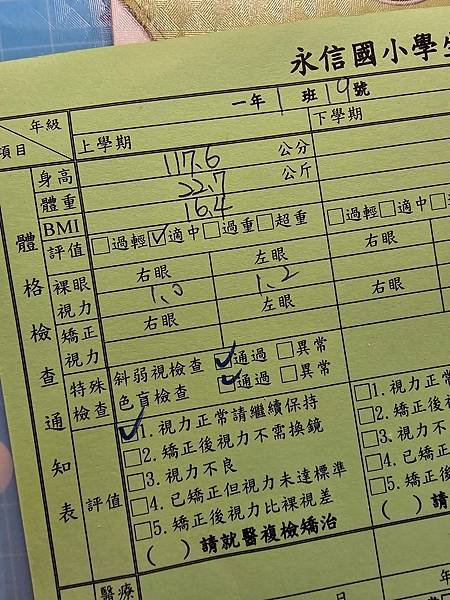 永信國小學生
一年 1 班 19 號
年級
項目
上學期
下學期
體格檢查通知表
身高
117.6 公分
體重
22.7 公斤
BMI
16.4
評值
□過輕☑適中□過重□超重
□過輕□適中□過
裸眼視力
右眼 左眼 右眼
1.0 1.2
矯正視力
右眼 左眼 右眼
特殊檢查
斜弱視檢查 ☑通過□異常
色盲檢查 ☑通過□異常
評值
☑1. 視力正常請繼續保持
□2. 矯正後視力不需換鏡
□3. 視力不良
□4. 已矯正但視力未達標準
□5. 矯正後視力比裸視差
( ) 請就醫複檢矯治
□1. 視力正常
□2. 矯正後視
□3. 視力不
□4. 已矯正
□5. 矯正後
( ) 請
醫療
日
年